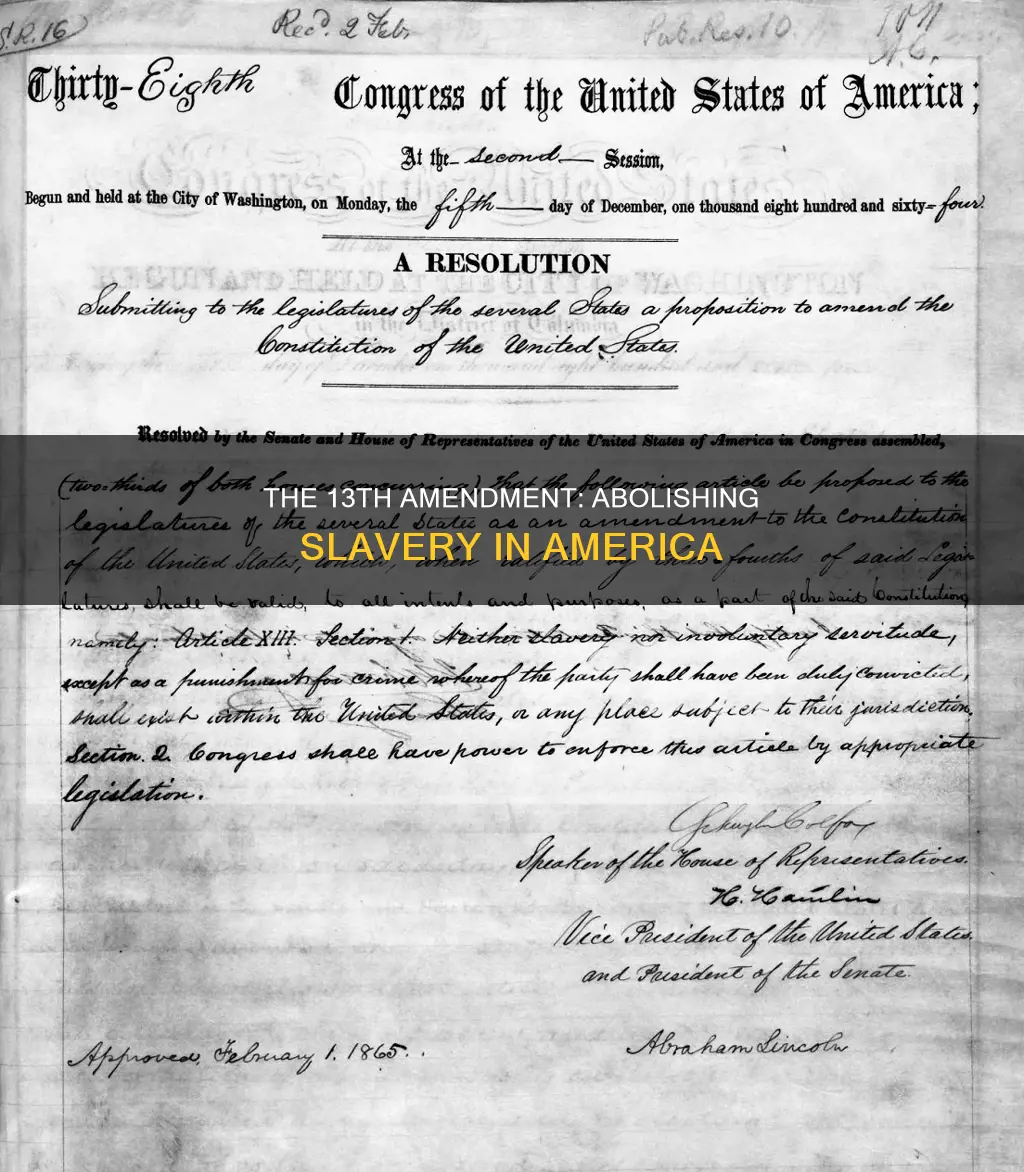 S.R. 16
Rec'd. 2 Feb.
Pub. Res. 10.
Thirty-Eighth Congress of the United States of America;
At the second Session,
Begun and held at the City of Washington, on Monday, the fifth day of December, one thousand eight hundred and sixty-four.
A RESOLUTION
Submitting to the legislatures of the several States a proposition to amend the
Constitution of the United States.
Resolved by the Senate and House of Representatives of the United States of America in Congress assembled,
(two-thirds of both houses concurring) that the following article be proposed to the
THE 13TH AMENDMENT: ABOLISHING
legislatures of the several States as an amendment to the Constitution
SLAVERY IN AMERICA
of the United States, which, when ratified by three-fourths of said Legis-
latures, shall be valid, to all intents and purposes, as a part of the said Constitution,
namely: Article XIII. Section 1. Neither slavery nor involuntary servitude,
except as a punishment for crime whereof the party shall have been duly convicted,
shall exist within the United States, or any place subject to their jurisdiction.
Section. 2. Congress shall have power to enforce this article by appropriate
legislation.
Schuyler Colfax
Speaker of the House of Representatives.
H. Hamlin
Vice President of the United States,
and President of the Senate.
Approved, February 1. 1865.
Abraham Lincoln